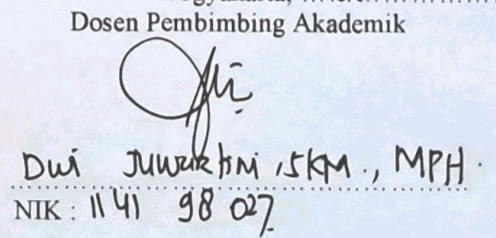 Dosen Pembimbing Akademik
Dwi Juwartini, SKM., MPH.
NIK : 1141 98 027